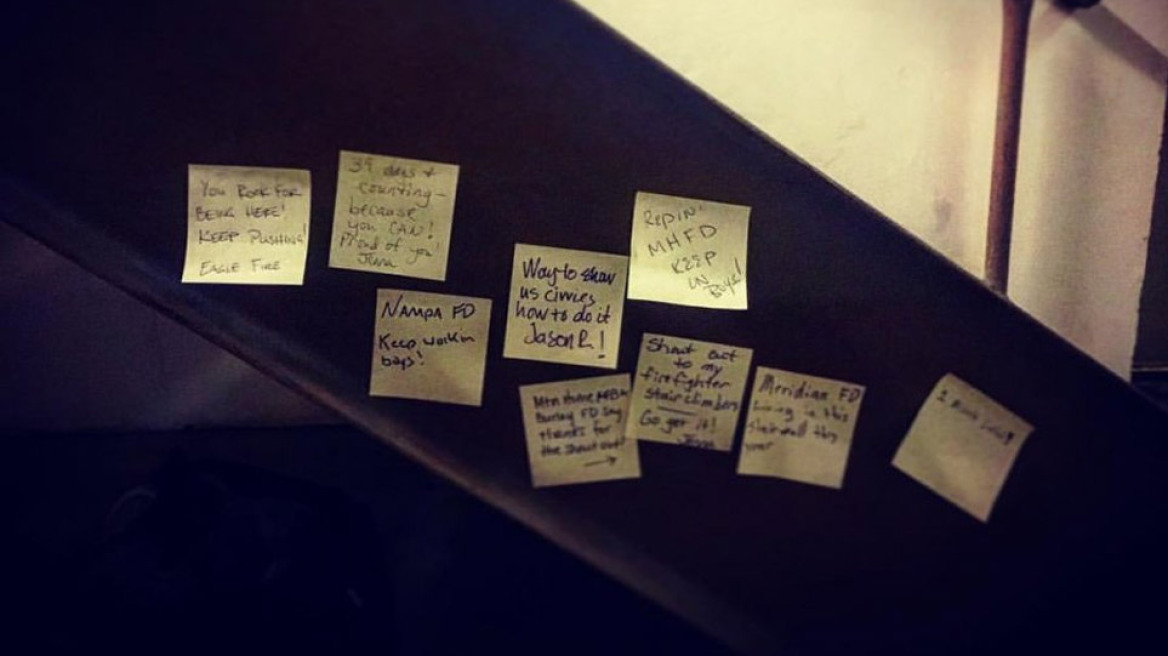 YOU ROCK FOR
BEING HERE!
KEEP PUSHING!
EAGLE FIRE
39 days +
counting-
because
you CAN!
Proud of you!
Jenna
NAMPA FD
Keep workin
boys!
Way to show
us civvies
how to do it
Jason R!
REPIN'
MHFD
KEEP
UP
Boys!
Mtn Home
Burley FD say
thanks for
the shout out!
→
Shout out
to my
firefighter
stairclimbers
Go get it!
Jenna
Meridian FD
in this
stairwell this
year